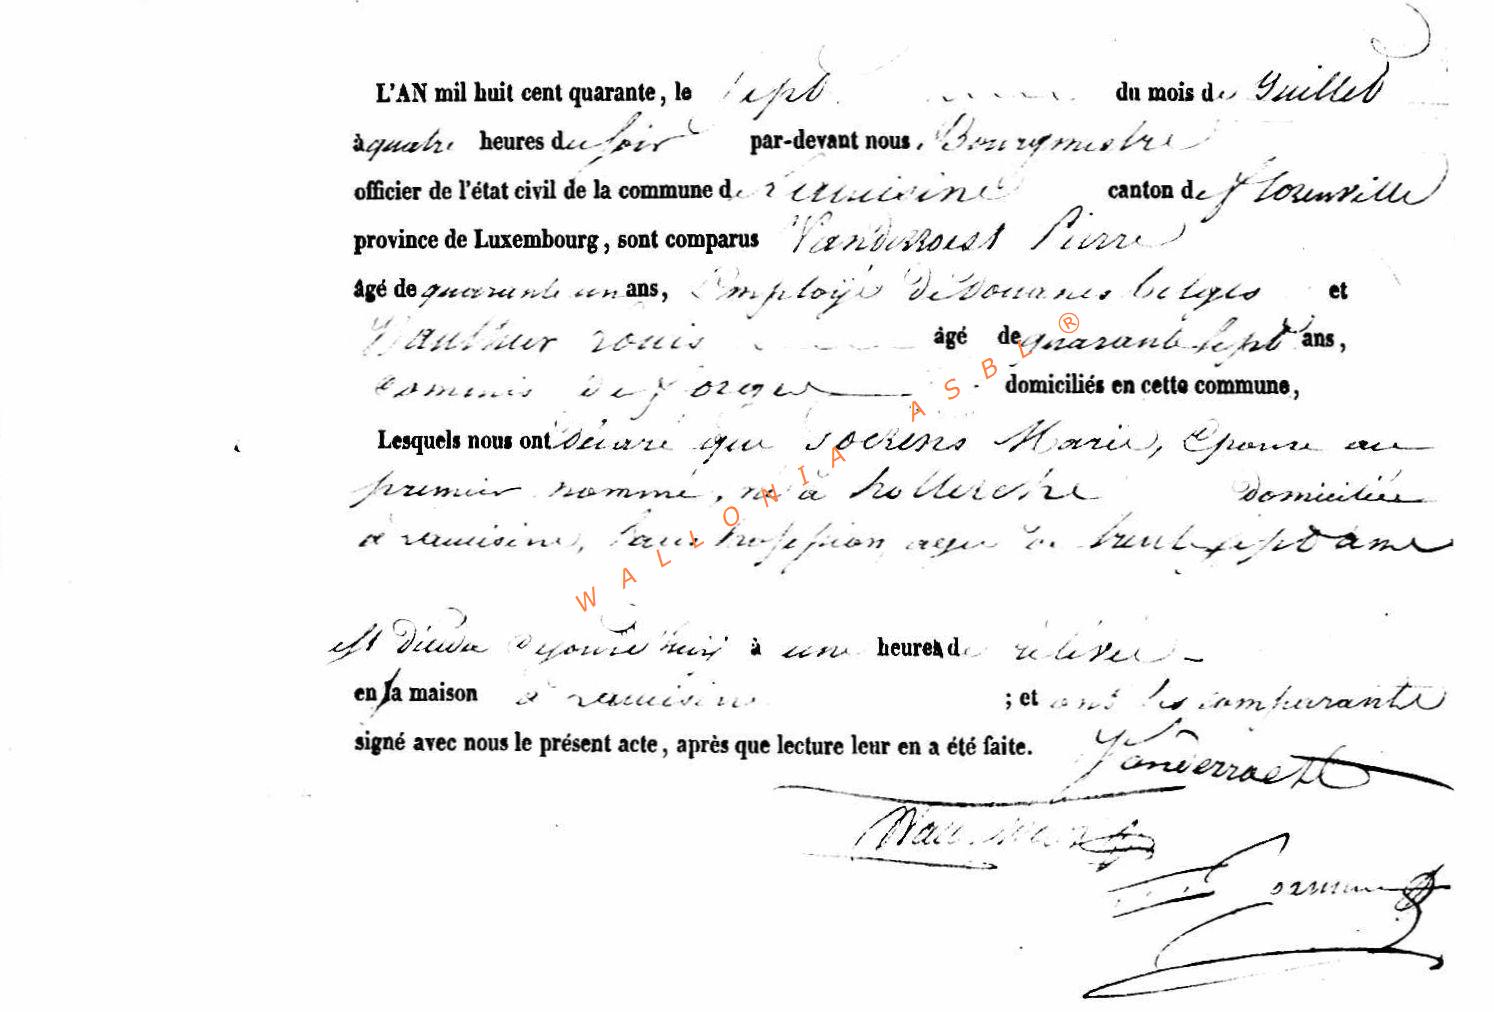 L'AN mil huit cent quarante, le sept du mois de Juillet
à quatre heures du soir par-devant nous, Bourgmestre
officier de l'état civil de la commune de canton de Florenville
province de Luxembourg, sont comparus Vanderroest Pierre
âgé de quarante un ans, Employé de douanes belges et
Wauthier Louis âgé de quarante sept ans,
Commis de forges domiciliés en cette commune,
Lesquels nous ont déclaré que Sockens Marie, Epouse au
premier nommé, né à domiciliée
à sans proffession agée de trente sept ans
est décédée aujourd'hui à une heure de rélévée
en sa maison à ; et ont les comparants
signé avec nous le présent acte, après que lecture leur en a été faite.
Vanderroest
WALLONIA ASBL ®